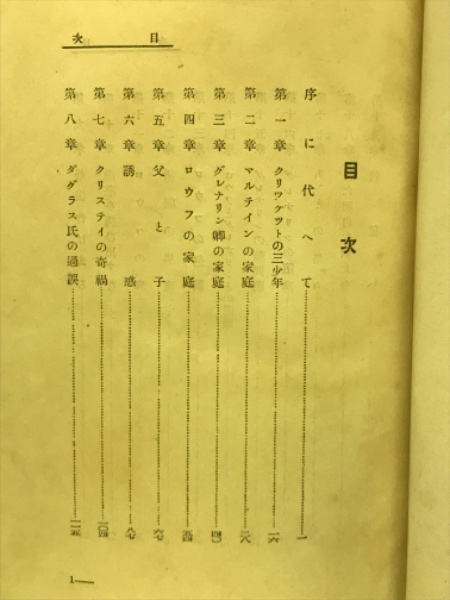 目次
目次
序に代へて……一
第一章 クリツケツトの三少年……一六
第二章 マルテインの家庭……二八
第三章 グレナリン卿の家庭……四〇
第四章 ロウフの家庭……五四
第五章 父と子……六七
第六章 誘惑……八七
第七章 クリステイの奇禍……一〇四
第八章 ダグラス氏の過誤……一一五
1